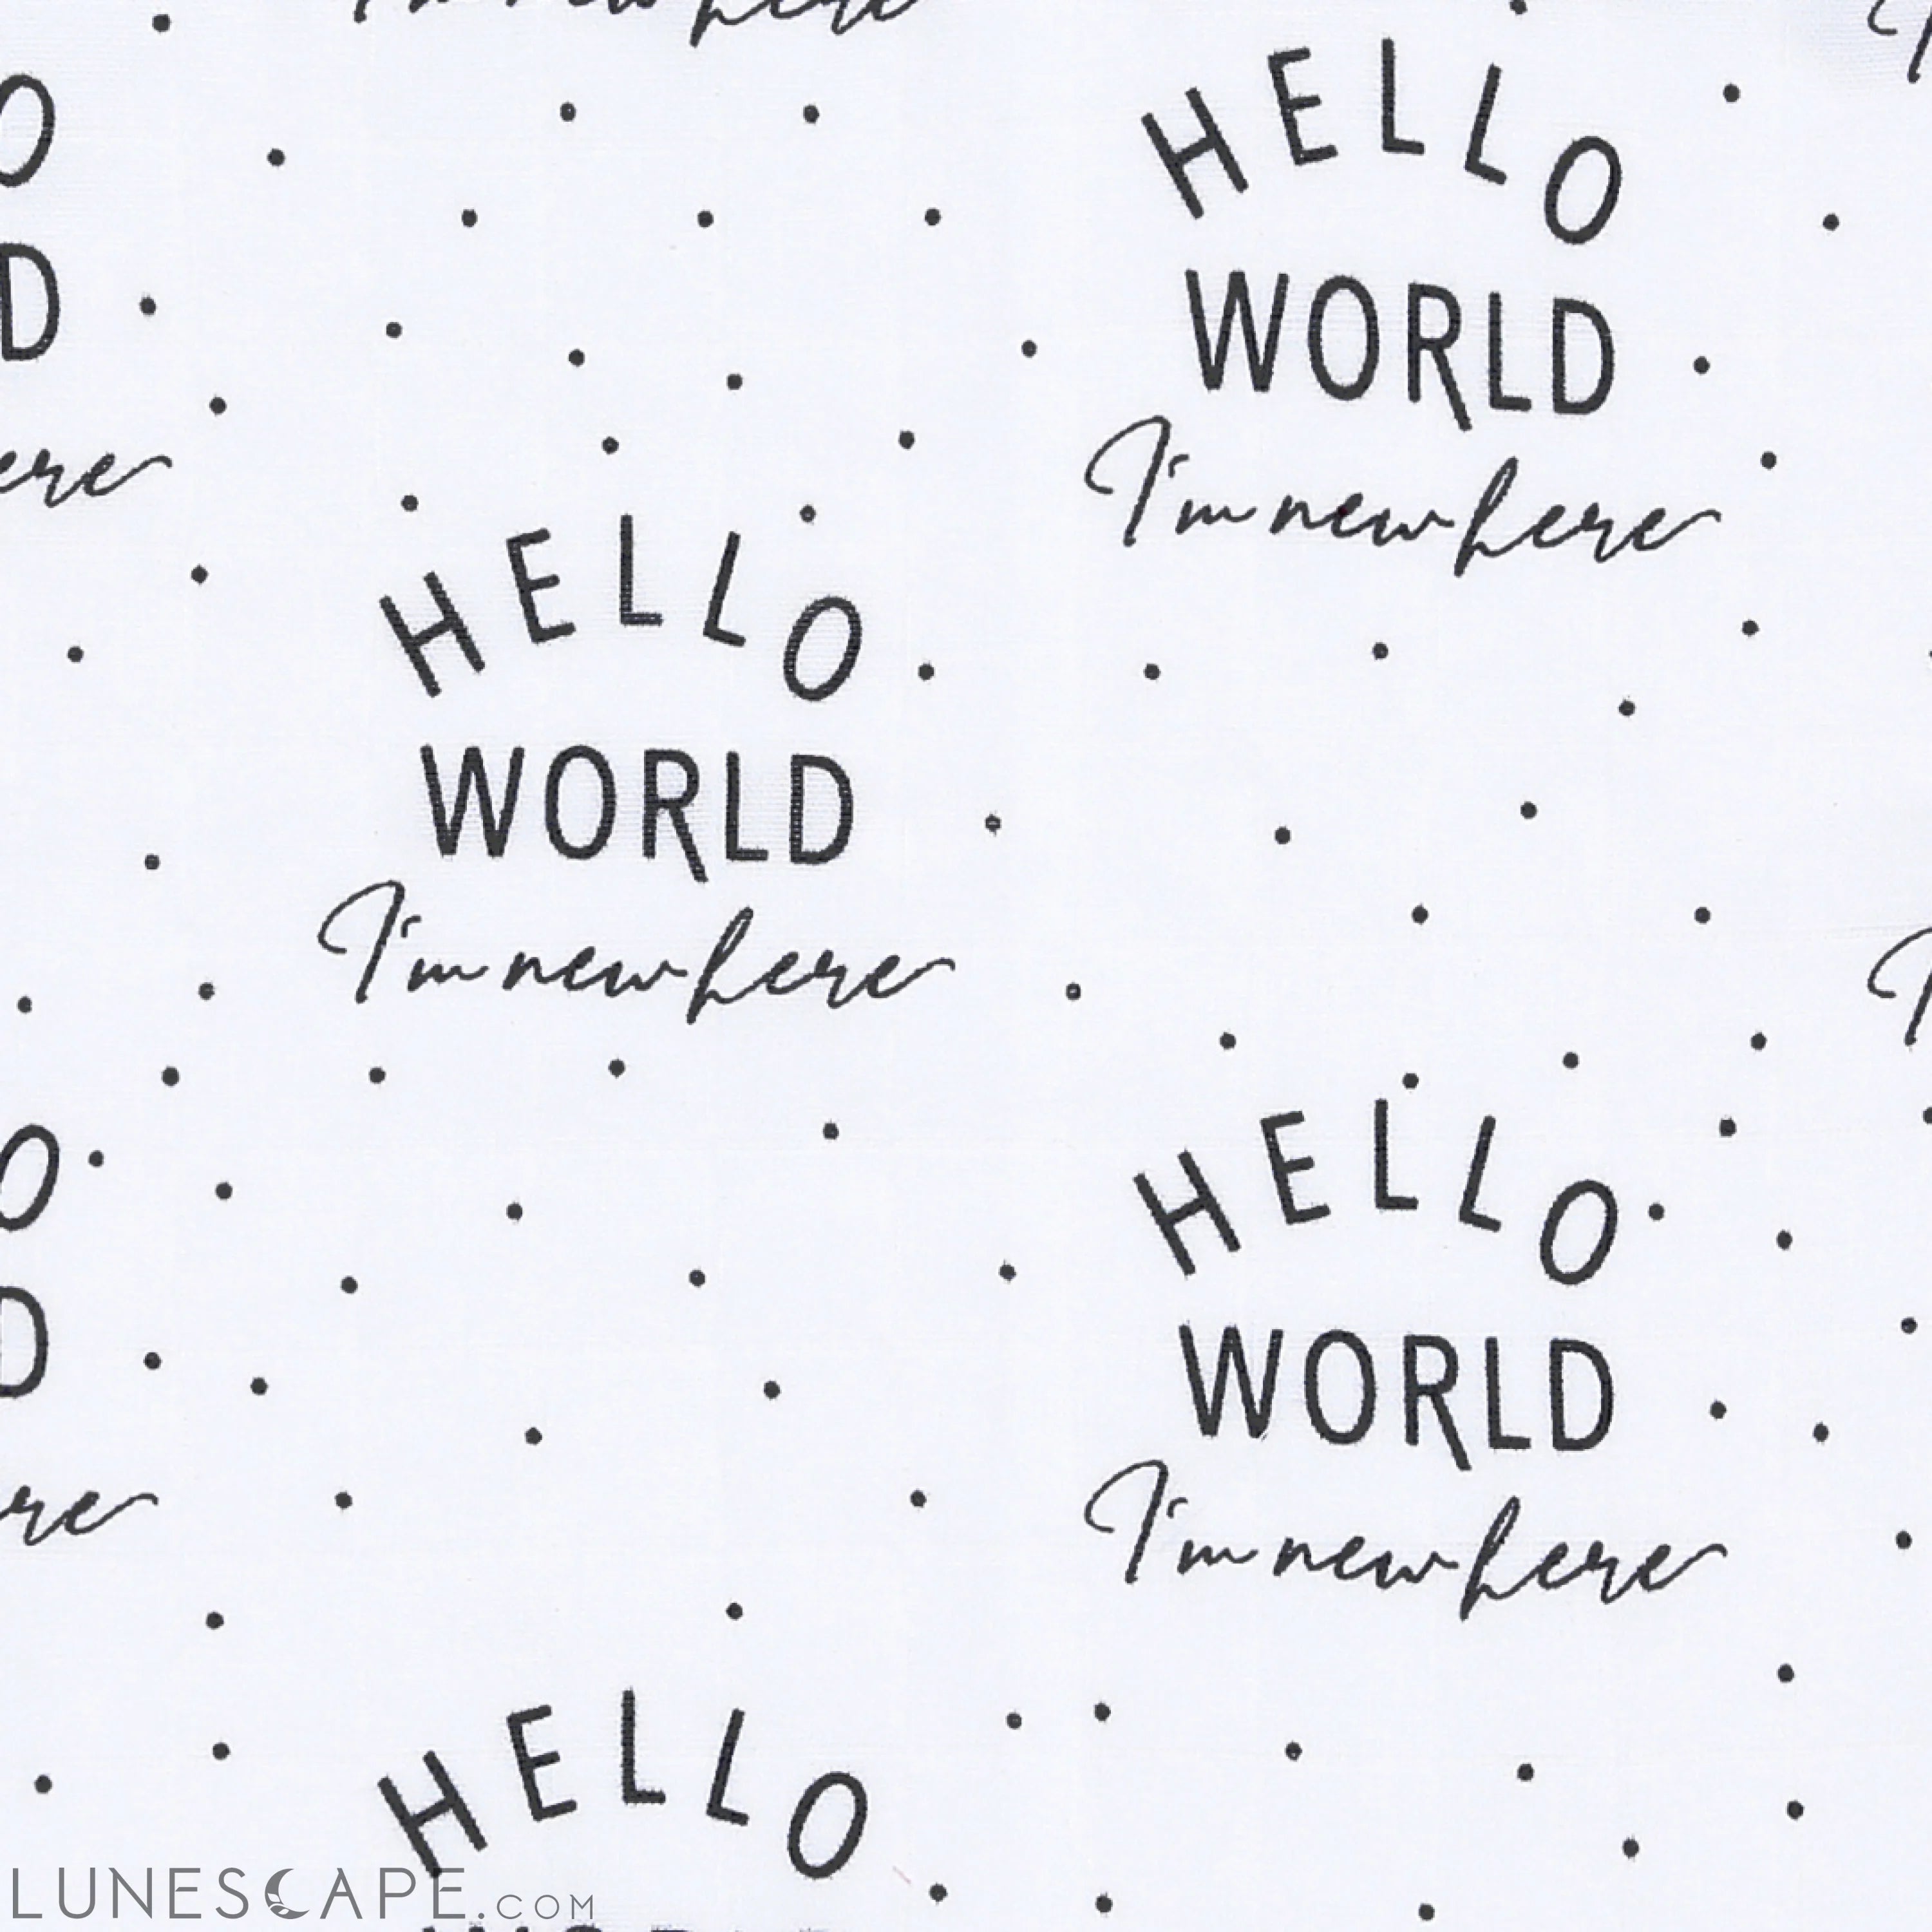 I'm new here
HELLO
WORLD
I'm new here
O
D
ere
HELLO
WORLD
I'm new here
HELLO
WORLD
I'm new here
O
D
re
HELLO
LUNESCAPE.COM